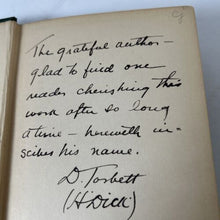 The grateful author—
glad to find one
reader cherishing this
work after so long
a time — herewith in-
scibes his name.
D. Torbett
("Dick")